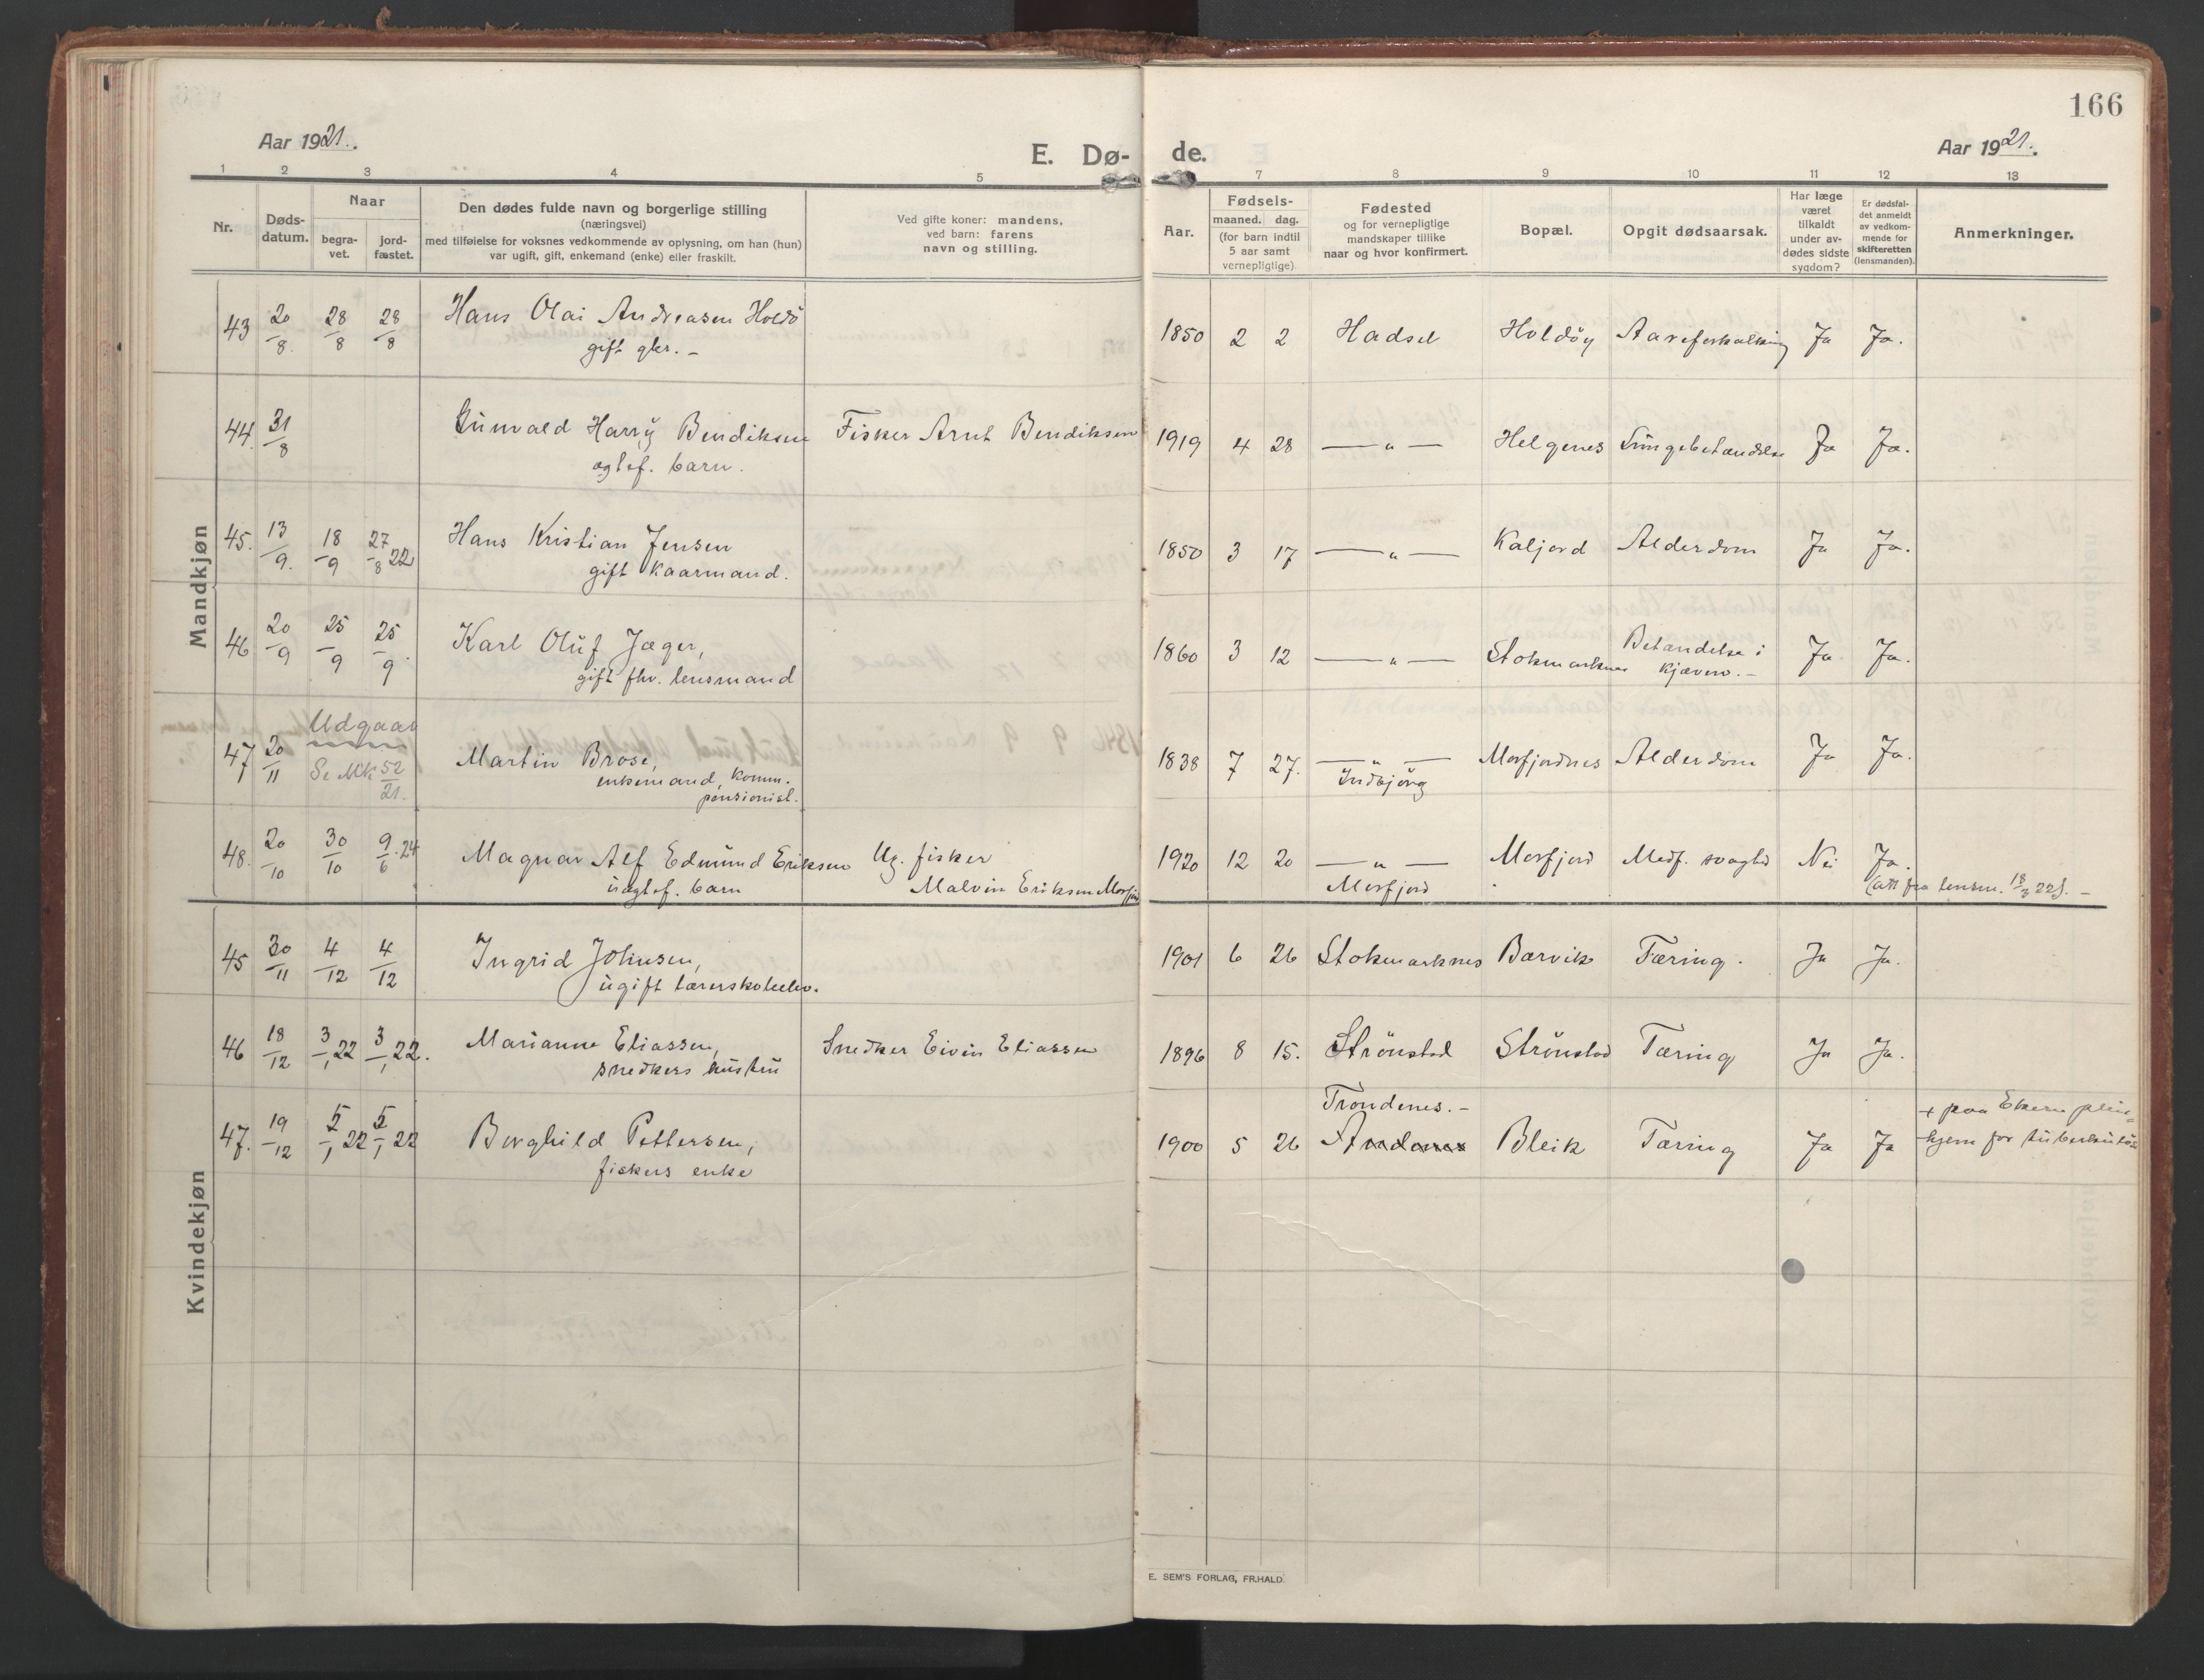 166
Aar 1921.
E. Dø- de.
Aar 1921.
1 2 3 4 5 7 8 9 10 11 12 13
Nr.
Døds-
datum.
Naar
begra-
vet.
jord-
fæstet.
Den dødes fulde navn og borgerlige stilling
(næringsvei)
med tilføielse for voksnes vedkommende av oplysning, om han (hun)
var ugift, gift, enkemand (enke) eller fraskilt.
Ved gifte koner: mandens,
ved barn: farens
navn og stilling.
Fødsels-
Aar.
maaned. dag.
(for barn indtil
5 aar samt
vernepligtige)
Fødested
og for vernepligtige
mandskaper tillike
naar og hvor konfirmert.
Bopæl.
Opgit dødsaarsak.
Har læge
været
tilkaldt
under av-
dødes sidste
sygdom?
Er dødsfal-
det anmeldt
av vedkom-
mende for
skifteretten
(lensmanden).
Anmerkninger.
Mandkjøn
43 20/8. 28/8 28/8 Hans Olai Andreasen Holdö 1850 2 2 Hadsel Holdöy Aareforkalkning Ja Ja.
gift gbr. -
44. 31/8 Gunvald Harry Bendiksen Fisker Arnt Bendiksen 1919 4 28 — " — Helgenes Lungebetændelse Ja Ja.
ægtef. barn.
45. 13/9. 18/9 27/8 22 Hans Kristian Jensen 1850 3 17 — " — Kaljord Alderdom Ja Ja.
gift kaarmand.
46 20/9 25/9 25/9. Karl Oluf Jæger, 1860 3 12 — " — Stokmarknes Betændelse i Ja Ja.
gift fhv. lensmand kjæven. -
Udgaar
47 20/11 Se Mk 52/21. Martin Brose, 1838 7 27. — " — Morfjordnes Alderdom Ja Ja.
enkemand, komm. Indbjörg
pensionist.
48. 20/10 30/10 9/6. 24 Magnar Alf Edmund Eriksen Ug. fisker 1920 12 20 — " — Morfjord Medf. svaghed Nei Ja.
uægtef. barn Malvin Eriksen Morfjord Morfjord (att fra lensm. 18/3 22). -
Kvindekjøn
45 30/11 4/12 4/12 Ingrid Johnsen, 1901 6 26 Stokmarknes Barvik Tæring. Ja Ja.
ugift lærerskoleelev.
46 18/12 3/1 22 3/1 22. Marianne Eliassen, Snedker Eivin Eliassen 1896 8 15. Strönstad Strönstad Tæring Ja Ja.
snedkers hustru
Tröndenes. -
47. 19/12 5/1 22 5/1 22 Berghild Pettersen, 1900 5 26 Andenes Bleik Tæring Ja Ja + paa Ekern pleie-
fiskers enke hjem for tuberkulöse
E. SEM'S FORLAG, FR.HALD.